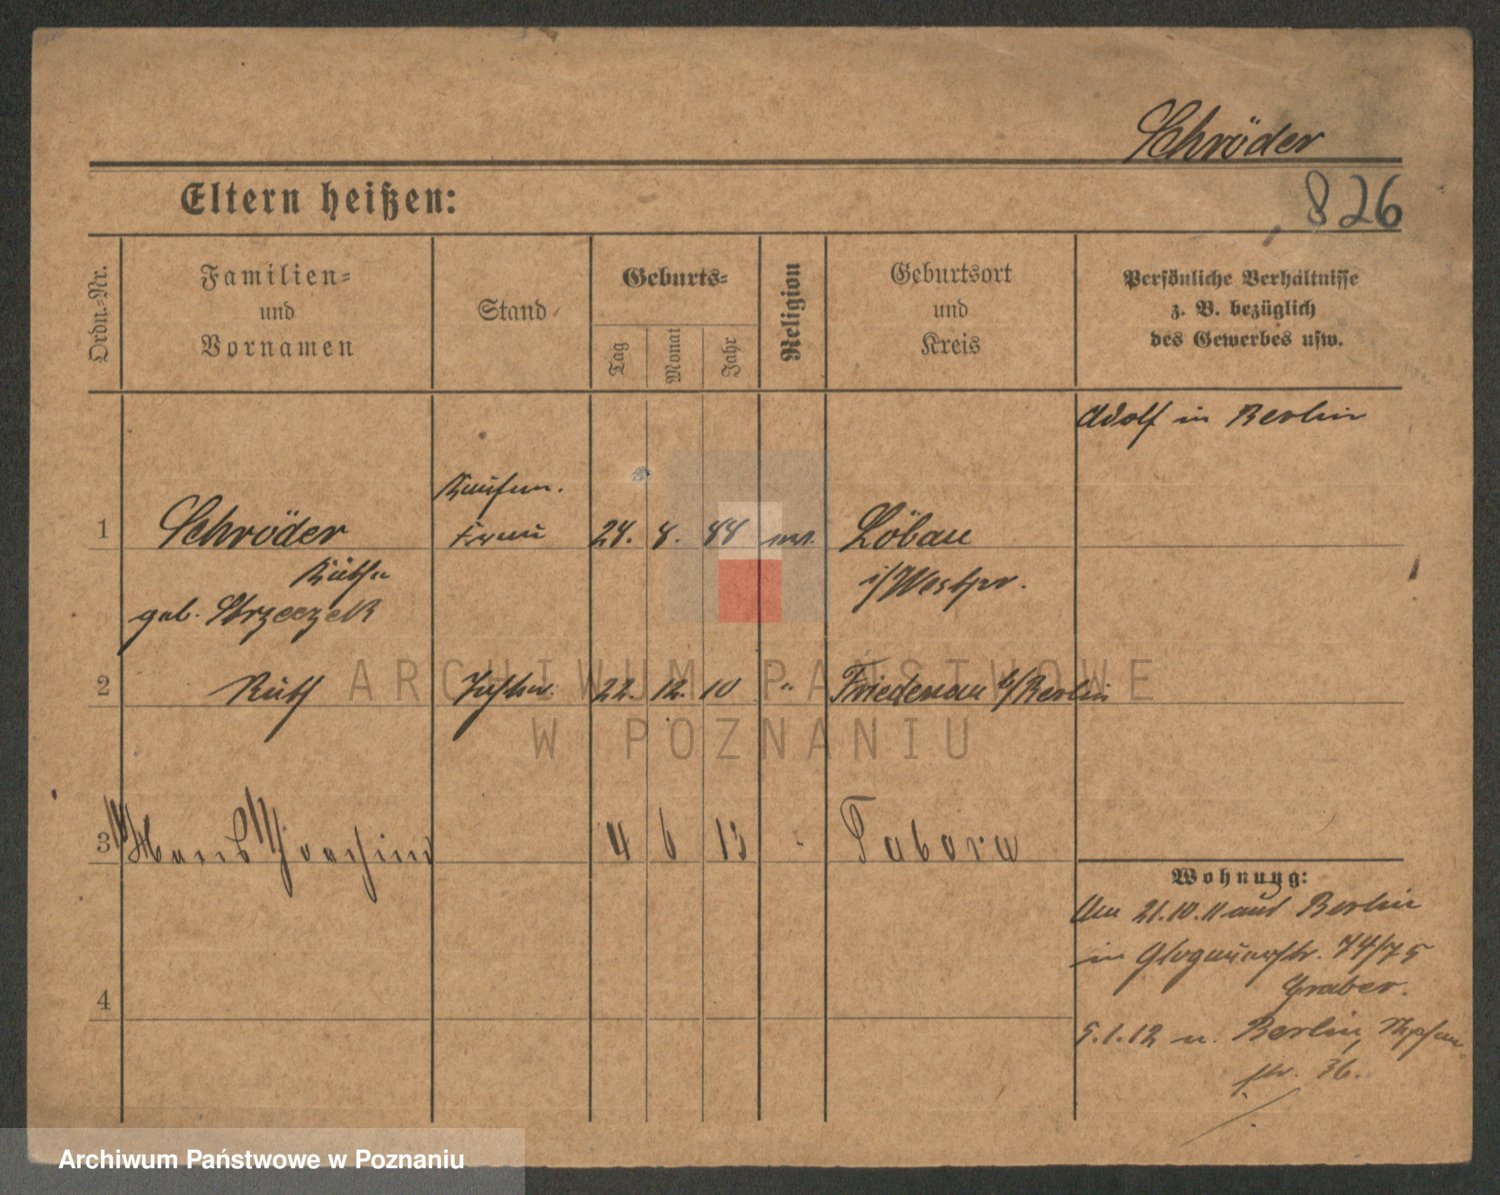 Schröder
Eltern heißen:
826
Ordn.-Nr.
Familien-
und
Vornamen
Stand
Geburts-
Tag
Monat
Jahr
Religion
Geburtsort
und
Kreis
Persönliche Verhältnisse
z. B. bezüglich
des Gewerbes usw.
Adolf in Berlin
Kaufm.
1 Schröder Frau 8. Löbau
Käthe i/Westpr.
geb.
2 Ruth Tochter 22. 12. 10 " Friedenau b/Berlin
3 Hans Joachim 4 6 13 Tabora
Wohnung:
Am 21.10.11 aus Berlin
in Glogauerstr. 74/75
Graber.
5.1.12 n. Berlin,
str. 36.
4
ARCHIWUM PAŃSTWOWE
W POZNANIU
Archiwum Państwowe w Poznaniu